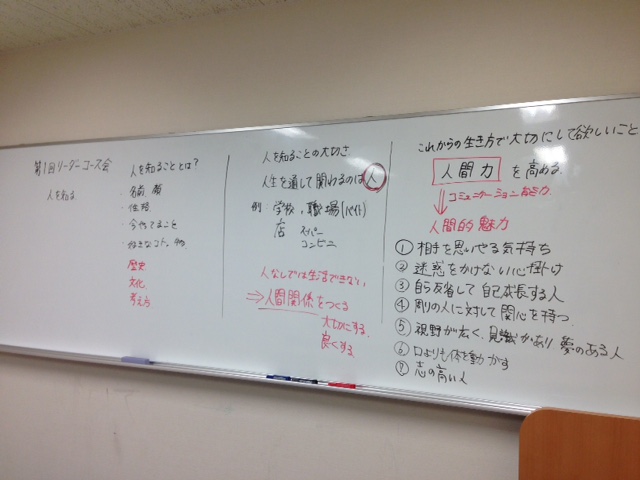 第1回リーダーコース会
人を知る
人を知ることとは?
・名前 顔
・性格
・今やってること
・好きなコト、物
歴史
文化
考え方
人を知ることの大切さ
人生を通して関わるのは人
例 学校、職場(バイト)
店 スーパー
コンビニ
人なしでは生活できない
⇒人間関係をつくる
大切にする
良くする
これからの生き方で大切にして欲しいこと
人間力 を高める
コミュニケーション能力
人間的魅力
① 相手を思いやる気持ち
② 迷惑をかけない心掛け
③ 自ら反省して自己成長する人
④ 周りの人に対して関心を持つ
⑤ 視野が広く、見識があり 夢のある人
⑥ 口よりも体を動かす
⑦ 志の高い人